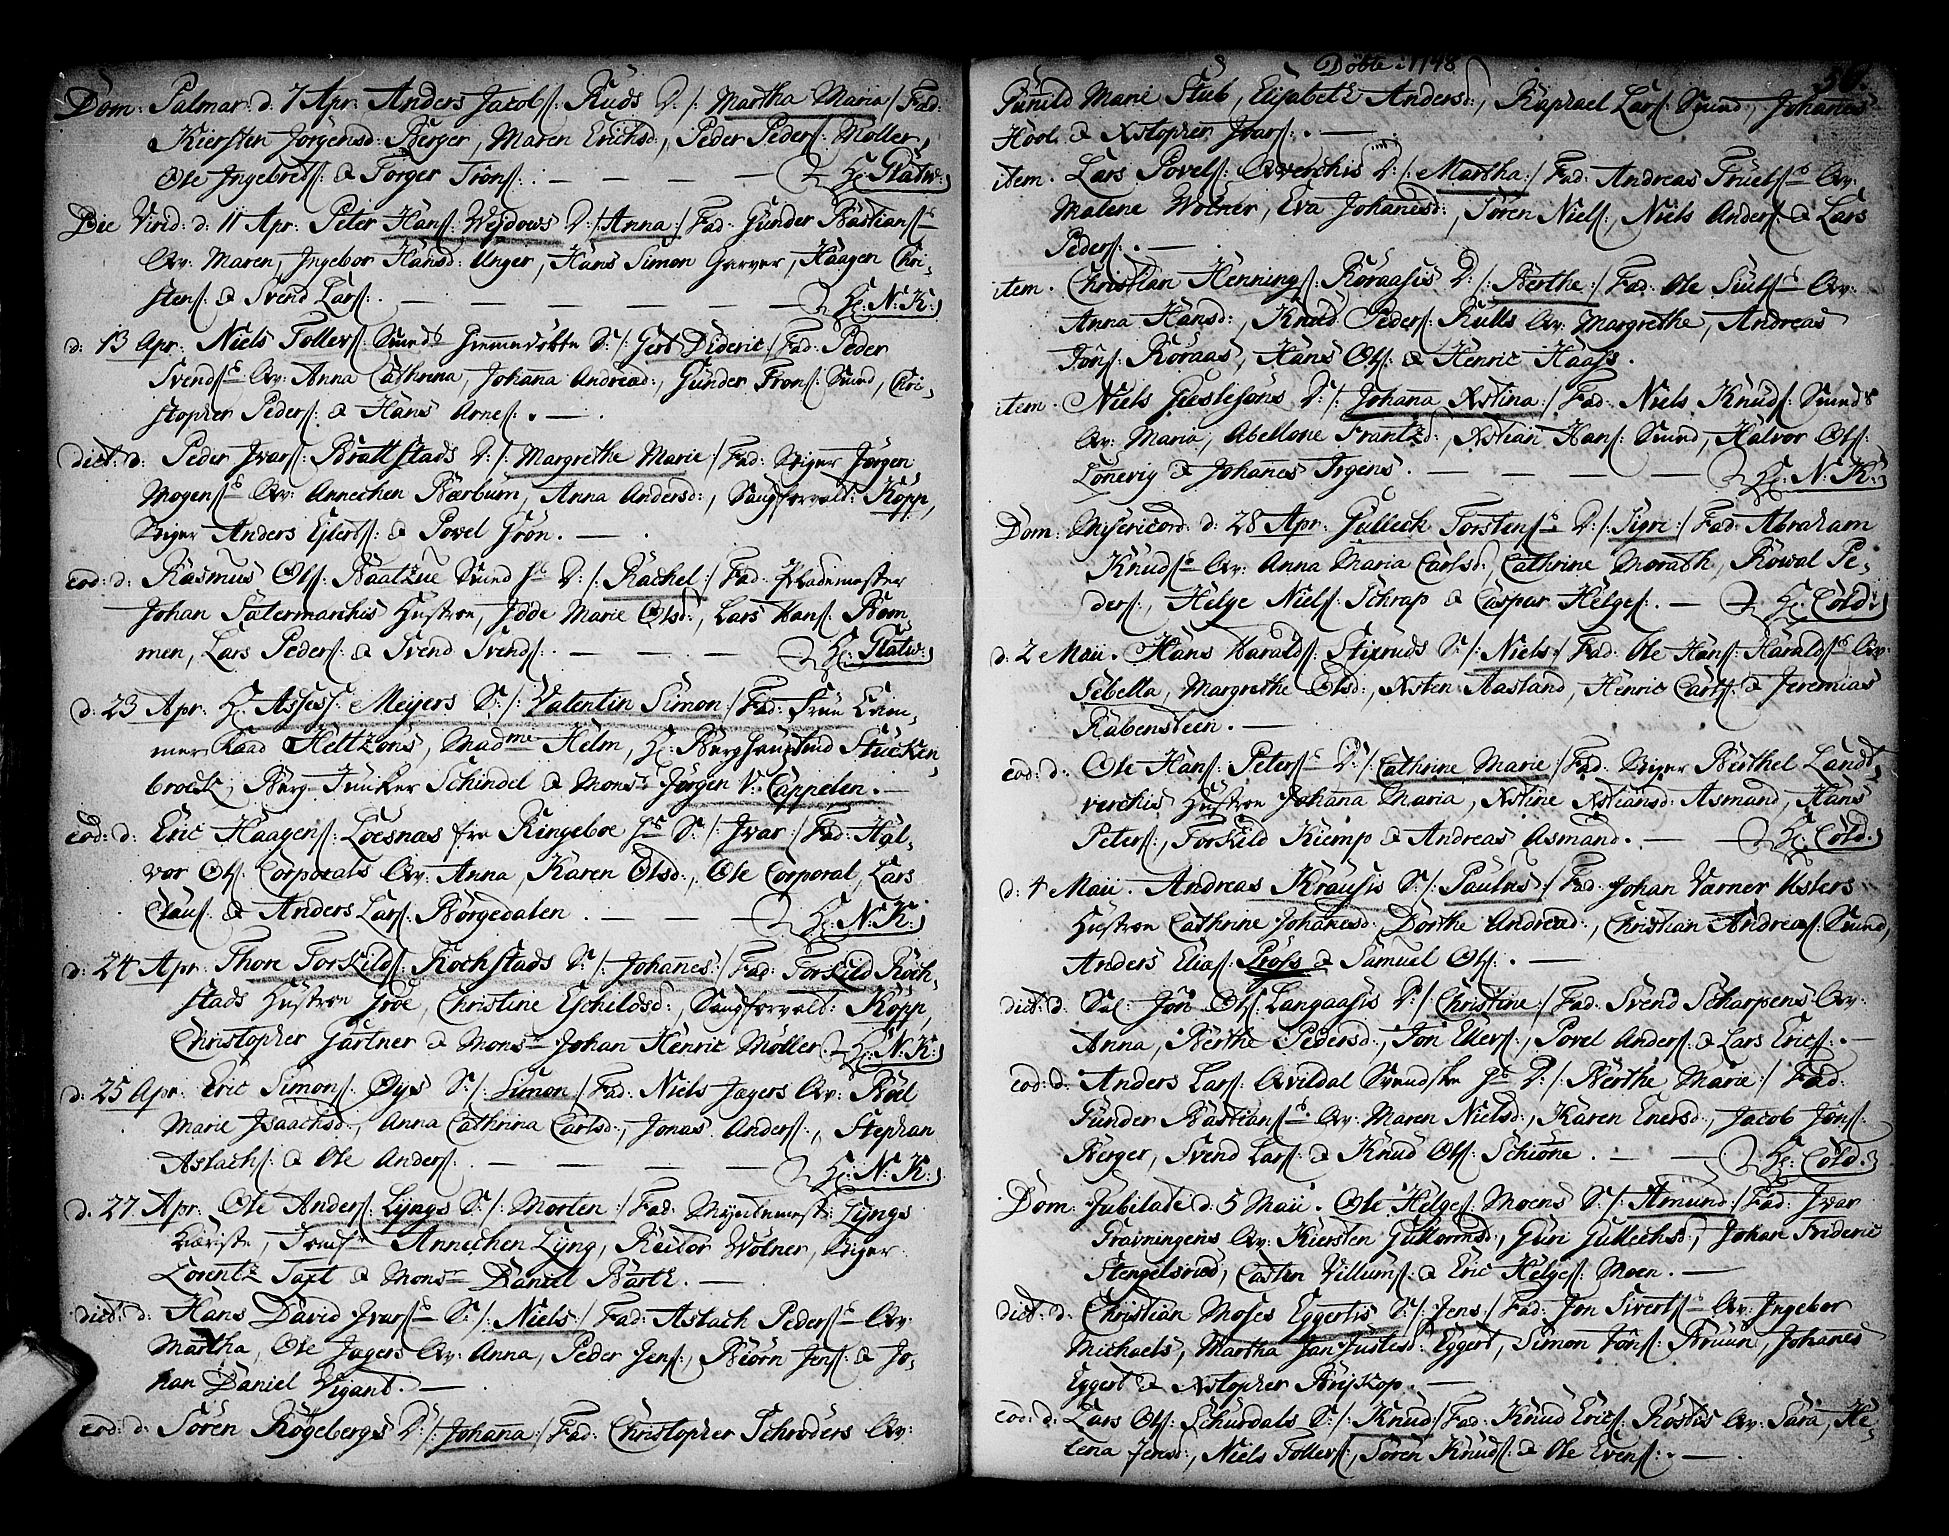 Dom: Palmar: d: 7 Apr: Anders Jacobs: Ruds D:/: Martha Maria /: Fad:
Kiersten Jörgensd: Berger, Maren Erichsd:, Peder Peders: Möller,
Ole Ingebrets: & Torger Trons: — — — H: Statw:
Die Virid: d: 11 Apr: Peter Hans: Weydows D:/: Anna :/ Fad: Gunder Bastians:
Qv: Maren, Ingebor Hansd: Unger, Hans Simon Garver, Haagen Chri-
stens: & Svend Lars: — — — — — — H: N: K:
d: 13 Apr: Niels Tollevs: Sunds hiemmedöbte S:/: Gert Dideric :/ Fad: Peder
Svends: Qv: Anna Cathrina, Johana Andread:, Gunder Trons: Sund, Chri-
stopher Peders: & Hans Arnes: —
dict: d: Peder Ivars: Brattstads D:/: Margrethe Marie :/ Fad: Stiger Jörgen
Mogens: Qv: Annechen Bærbum, Anna Andersd:, Saugforvalt: Kopp,
Stiger Anders Eylerts: & Povel Grön. —
eod: d: Rasmus Ols: Baatzue Sund D:/: Rachel :/ Fad:
Johan Satermarchis Hustroe, Idde Marie Olsd:, Lars Hans: Bom-
men, Lars Peders: & Svend Svends: — — — H: Statw:
d: 23 Apr: H: Assess: Meyers S:/: Valentin Simon :/ Fad: Frue Cam-
mer Raad Heltzons, Madme Helm, H: Berghauptmd Stucken-
broeck, Berg-Juncker Schindel & Monsr Jörgen V: Cappelen. —
eod: d: Eric Haagens: Loesnas fra Ringeboe S:/: Ivar :/ Fad: Hal-
vor Ols: Corporals Qv: Anna, Karen Olsd:, Ole Corporal, Lars
Claus: & Anders Lars: Börgedalen. — — — H: N: K:
d: 24 Apr: Thore Torkilds: Kochstads S:/: Johannes :/ Fad: Torkild Koch-
stads Hustroe Groe, Christine Eschelsd:, Saugforvalt: Kopp,
Christopher Gartner & Monsr Johan Henric Möller. — H: N: K:
d: 25 Apr: Eric Simons: Öys S:/: Simon :/ Fad: Niels Jagers Qv: Boel
Marie Isaachsd:, Anna Cathrina Carlsd:, Jonas Anders:, Stephan
Aslachs: & Ole Anders: — — — H: N: K:
d: 27 Apr: Ole Anders: Lyngs S:/: Morten :/ Fad: Myntemest: Lyngs
Kiæriste, Annechen Lyng, Rector Wölner, Stiger
Lorentz Taxt & Monsr Daniel Barth. —
dict: d: Hans David Ivars: S:/: Niels :/ Fad: Aslach Peders: Qv:
Martha, Ole Jagers Qv: Anna, Peder Jens:, Biörn Jens: & Jo-
han Daniel Vigant. —
eod: d: Sören Rögebergs D:/: Johana :/ Fad: Christopher Schröders Qv:
Döbte i 1748
56.
Gunild Marie Stub, Elisabeth Andersd:, Raphael Lars: Sund, Johanes
Hool & Xstopher Ivars: —
item. Lars Povels: Qverchis D:/: Martha :/ Fad: Andreas Truels: Qv:
Malene Wölner, Eva Johanesd:, Sören Niels:, Niels Anders: & Lars
Peders: —
item. Christian Hennings: Koraasis D:/: Berthe :/ Fad: Ole Siuls: Qv:
Anna Hansd:, Knud Peders: Kulls Qv: Margrethe, Andreas
Jöns: Koraas, Hans Ols: & Henric Haass.
item. Niels Giesleson's D:/: Johana Xstina :/ Fad: Niels Knuds: Sunds
Qv: Maria, Abellone Frantzd:, Xstian Hans: Sund, Halvor Ols:
Lonevig & Johanes Irgens. — — — H: N: K:
Dom: Misericord: d: 28 Apr: Gulleck Torstens: D:/: Sigri :/ Fad: Abraham
Knuds: Qv: Anna Maria Carlsd:, Cathrine Morath, Rowal Pe-
ders:, Helge Niels: Schrap & Casper Helges: — H: Cold:
d: 2 Maii. Hans Haralds: Stixruds S:/: Niels :/ Fad: Ole Hans: Haralds: Qv:
Sebella, Margrethe Olsd:, Xsten Aasland, Henric Carls: & Jeremias
Rabenstein. —
eod: d: Ole Hans: Peters: D:/: Cathrine Marie :/ Fad: Stiger Berthel Landt-
verchis Hustroe Johana Maria, Xstine Xstiansd: Asmand, Hans
Peters:, Torkild Kiemp & Andreas Asmand. — H: Cold:
d: 4 Maii. Andreas Krausis S:/: Paulus :/ Fad: Johan Varner Usters
Hustroe Cathrine Johanesd:, Dorthe Andread:, Christian Andreas: Sund,
Anders Elias: Pröss & Samuel Ols: —
dict: d: Sal: Jön Ols: Langaasis D:/: Christine :/ Fad: Svend Scharpens Qv:
Anna, Berthe Pedersd:, Jon Ellevs:, Povel Anders: & Lars Erics: —
eod: d: Anders Lars: Qvildal Svendske D:/: Berthe Marie :/ Fad:
Gunder Bastians: Qv: Maren Nielsd:, Karen Enersd:, Jacob Jöns:
Berger, Svend Lars: & Knud Ols: Schione. — — H: Cold:
Dom: Jubilate d: 5 Maii. Ole Helges: Moens S:/: Amund :/ Fad: Ivar
Frainingens Qv: Kiersten Guttormsd:, Guri Gullechsd:, Johan Frideric
Stengelsrud, Casten Villums: & Eric Helges: Moen. —
dict: d: Christian Moses Eggertis S:/: Jens :/ Fad: Jon Siverts: Qv: Ingebor
Michaels, Martha Jan Justesd: Eggert, Simon Jöns: Bruun, Johanes
Eggert & Xstopher Bryskop. —
eod: d: Lars Ols: Schurdals S:/: Knud :/ Fad: Knud Erics: Rostis Qv: Sara, He-
lena Jensd:, Niels Tollevs:, Sören Knuds: & Ole Evens: —